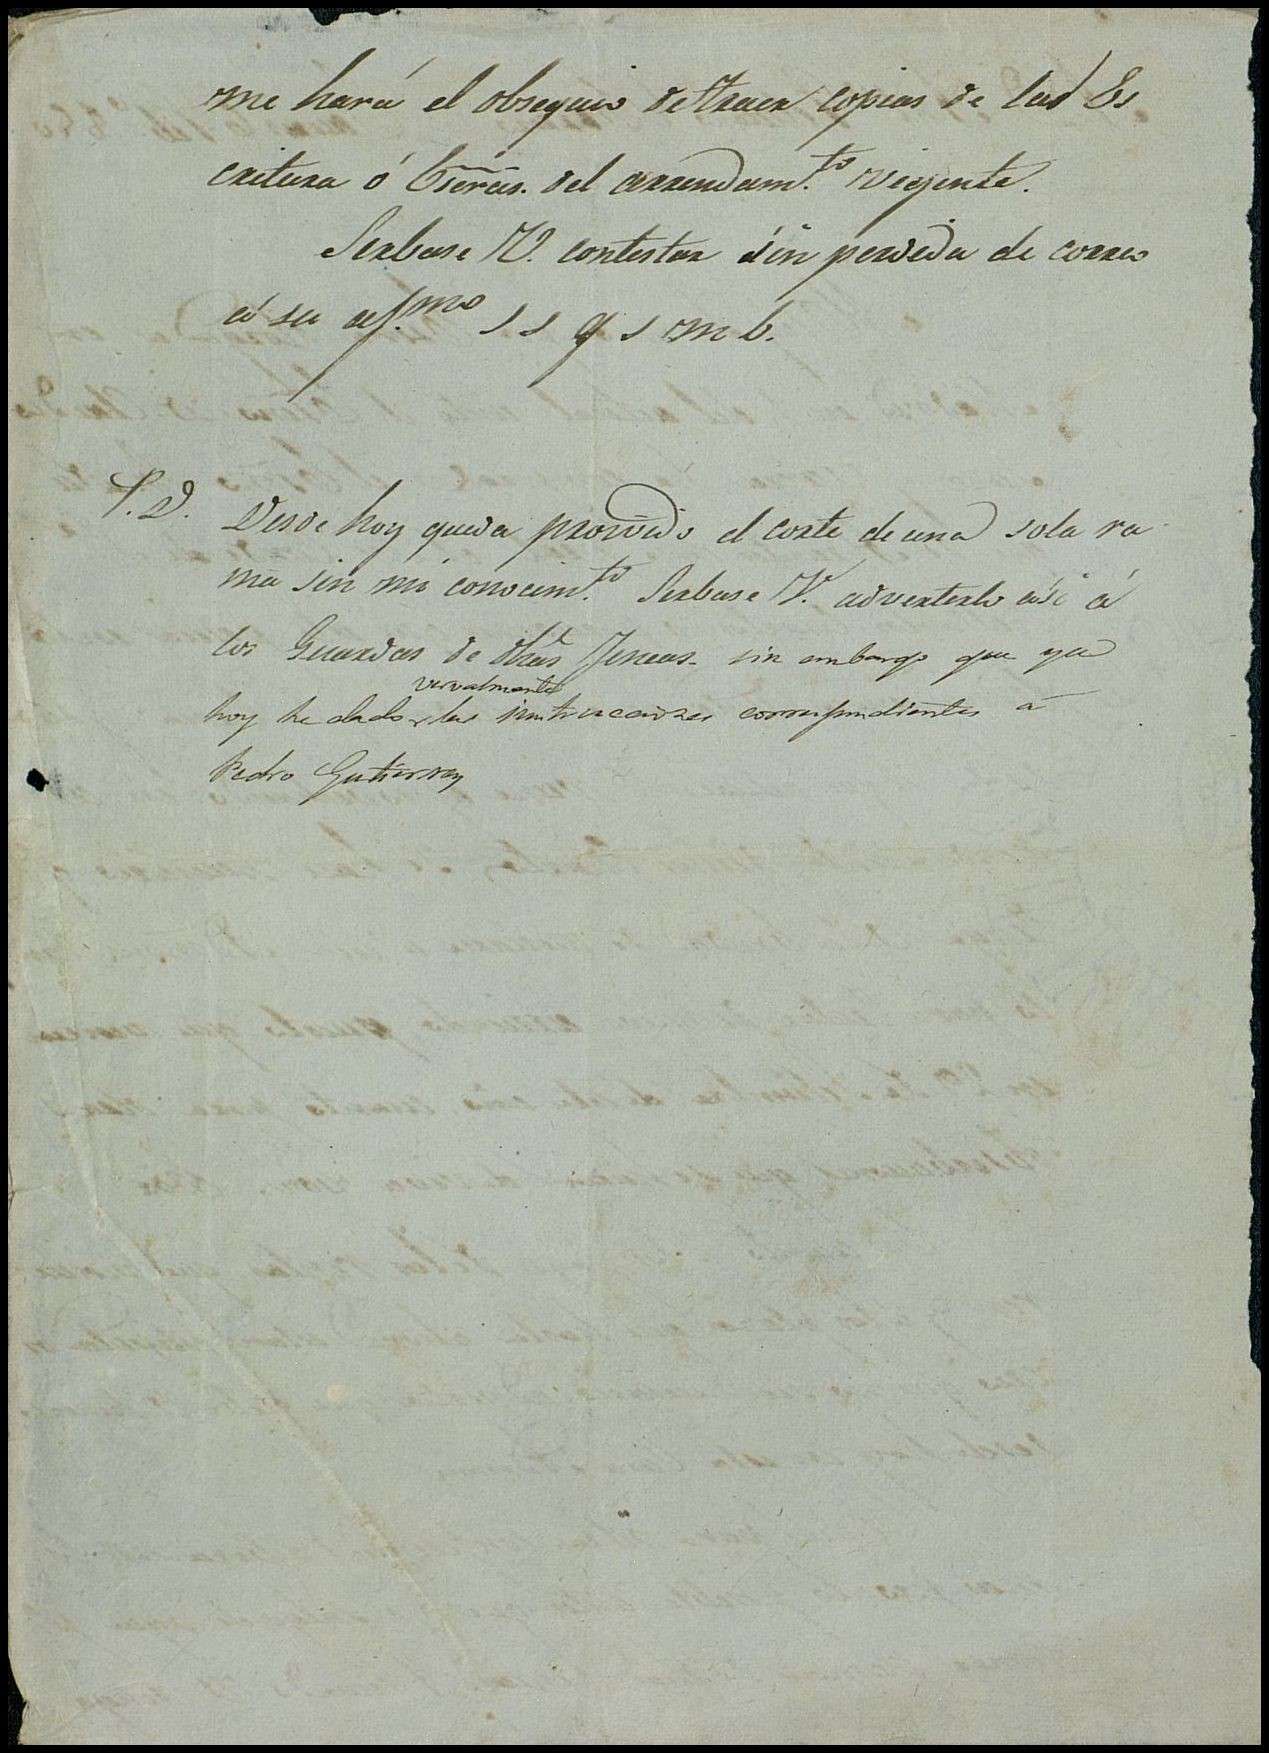 me hará el obsequio de traer copias de las Es
critura ó Escrās. del arrendam.to vigente.
Serbase V. contestar sin perdida de correo
á su af.mo s s q s m b.
P. D. Desde hoy queda proivido el corte de una sola ra
ma sin mi conocim.to Serbase V. adverterlo ási á
los Guardas de dhās fincas. sin embargo que ya
vervalmente
hoy he dado las instrucciones correspondientes á
Pedro Gutierrez